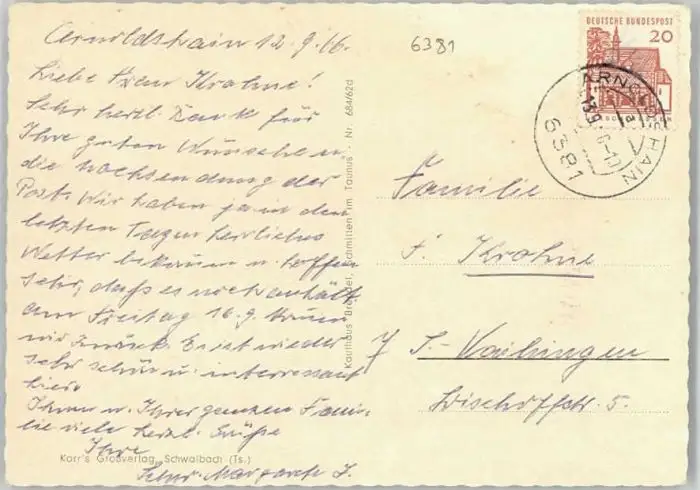 Arnoldshain 12.9.66
Liebe Frau Krohne!
Sehr herzl. Dank für
Ihre guten Wünsche u.
die Nachsendung der
Post. Wir haben ja in den
letzten Tagen herrliches
Wetter bekommen u. hoffen
sehr, daß es noch anhält
am Freitag 16.9.
wir zurück. Es ist wieder
sehr schön u. interessant
hier.
Ihnen u. Ihrer ganzen Fami-
lie viele herzl. Grüße
Ihre
Margarete
Karr's Großverlag, Schwalbach (Ts.)
Kaufhaus Schmitten im Taunus · Nr. 684/62d
6381
DEUTSCHE BUNDESPOST
20
ARNOLDSHAIN
6381
Familie
F. Krohne
7 S.-Vaihingen
Bischoffstr. 5.